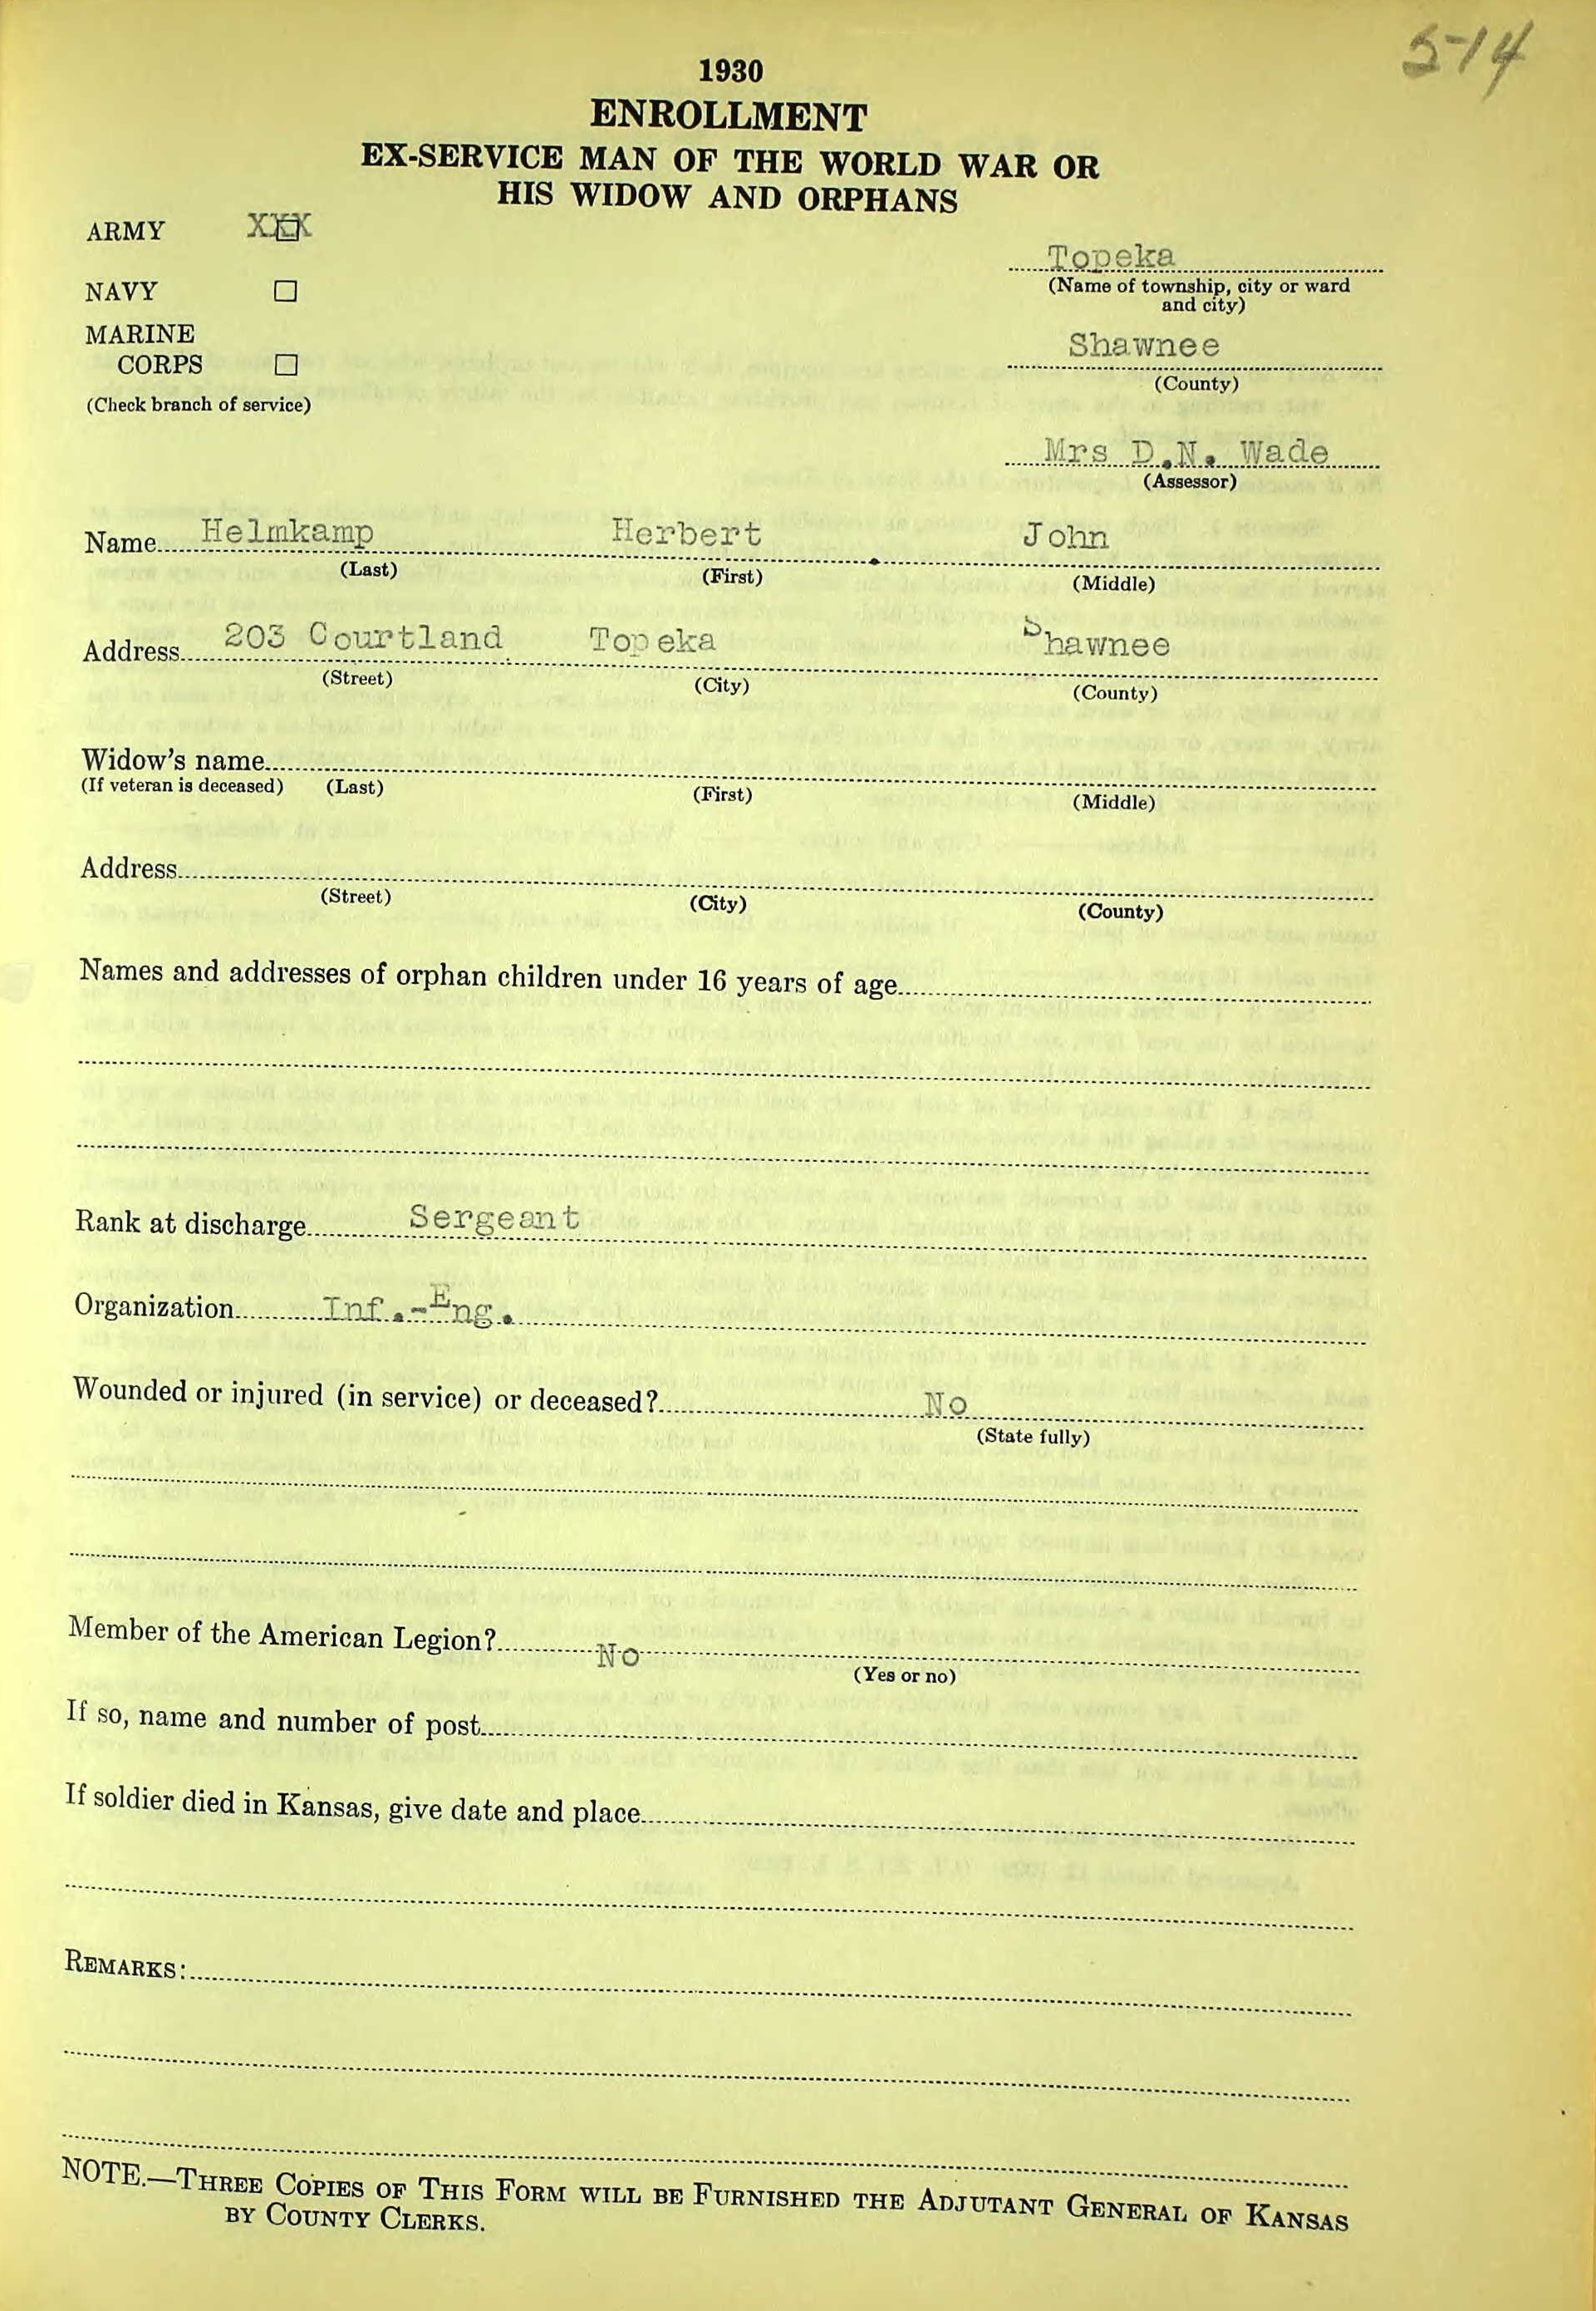 5-14
1930
ENROLLMENT
EX-SERVICE MAN OF THE WORLD WAR OR
HIS WIDOW AND ORPHANS
ARMY XXX
NAVY
MARINE
CORPS
(Check branch of service)
Topeka
(Name of township, city or ward
and city)
Shawnee
(County)
Mrs D.N. Wade
(Assessor)
Name Helmkamp Herbert John
(Last) (First) (Middle)
Address 203 Courtland Topeka Shawnee
(Street) (City) (County)
Widow's name
(If veteran is deceased) (Last) (First) (Middle)
Address
(Street) (City) (County)
Names and addresses of orphan children under 16 years of age
Rank at discharge Sergeant
Organization Inf.-Eng.
Wounded or injured (in service) or deceased? No
(State fully)
Member of the American Legion? No
(Yes or no)
If so, name and number of post
If soldier died in Kansas, give date and place
REMARKS:
NOTE.—THREE COPIES OF THIS FORM WILL BE FURNISHED THE ADJUTANT GENERAL OF KANSAS
BY COUNTY CLERKS.